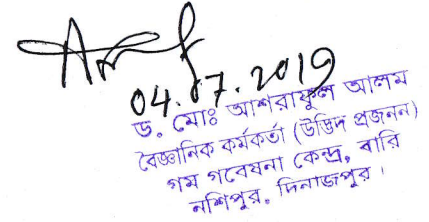 04.07.2019
ড. মোঃ আশরাফুল আলম
বৈজ্ঞানিক কর্মকর্তা (উদ্ভিদ প্রজনন)
গম গবেষনা কেন্দ্র, বারি
নশিপুর, দিনাজপুর।